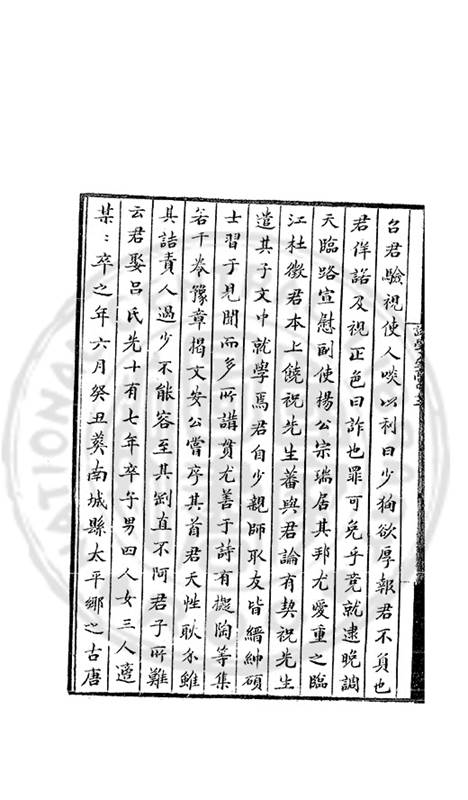 召君驗視使人啖以利曰少狥欲厚報君不負也
君佯諾及視正色曰詐也罪可免乎竟就逮晚調
天臨路宣慰副使楊公宗瑞居其邦尤愛重之臨
江杜徵君本上饒祝先生蕃與君論有契祝先生
遣其子文中就學焉君自少親師取友皆縉紳碩
士習于見聞而多所講貫尤善于詩有掇陶等集
若干卷豫章揭文安公嘗序其首君天性耿介雖
其詰責人過少不能容至其剛直不阿君子所難
云君娶呂氏先十有七年卒子男四人女三人適
某：卒之年六月癸丑葬南城縣太平鄉之古唐
NATIONAL